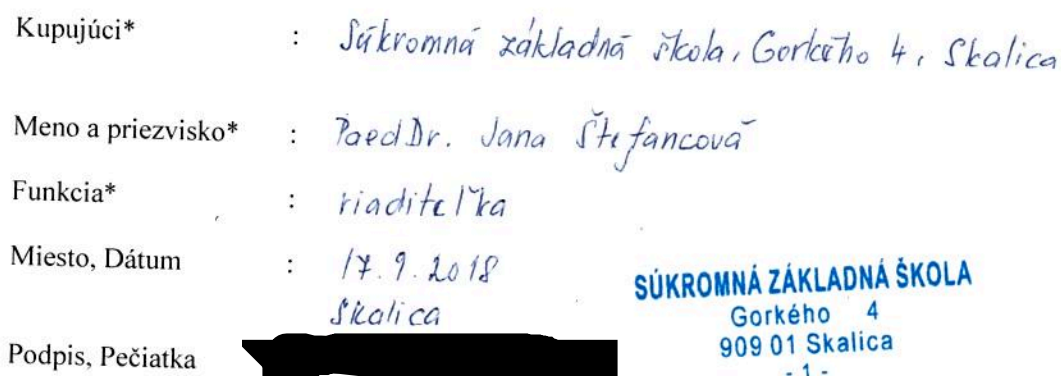 Kupujúci* : Súkromná základná škola, Gorkého 4, Skalica
Meno a priezvisko* : PaedDr. Jana Štefancová
Funkcia* : riaditeľka
Miesto, Dátum : 17.9.2018
Skalica
SÚKROMNÁ ZÁKLADNÁ ŠKOLA
Gorkého 4
909 01 Skalica
- 1 -
Podpis, Pečiatka